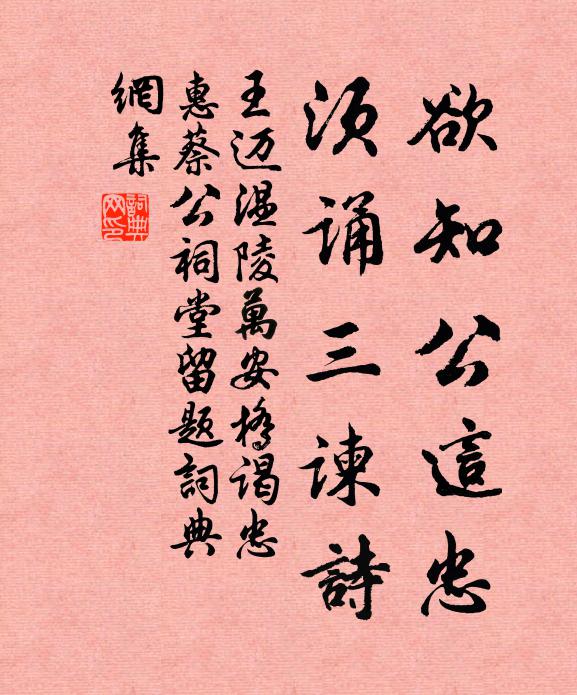 欲知公這忠
须诵三谏詩
王迈温陵萬安橋谒忠
惠蔡公祠堂留题詞典
網集
詞典網印